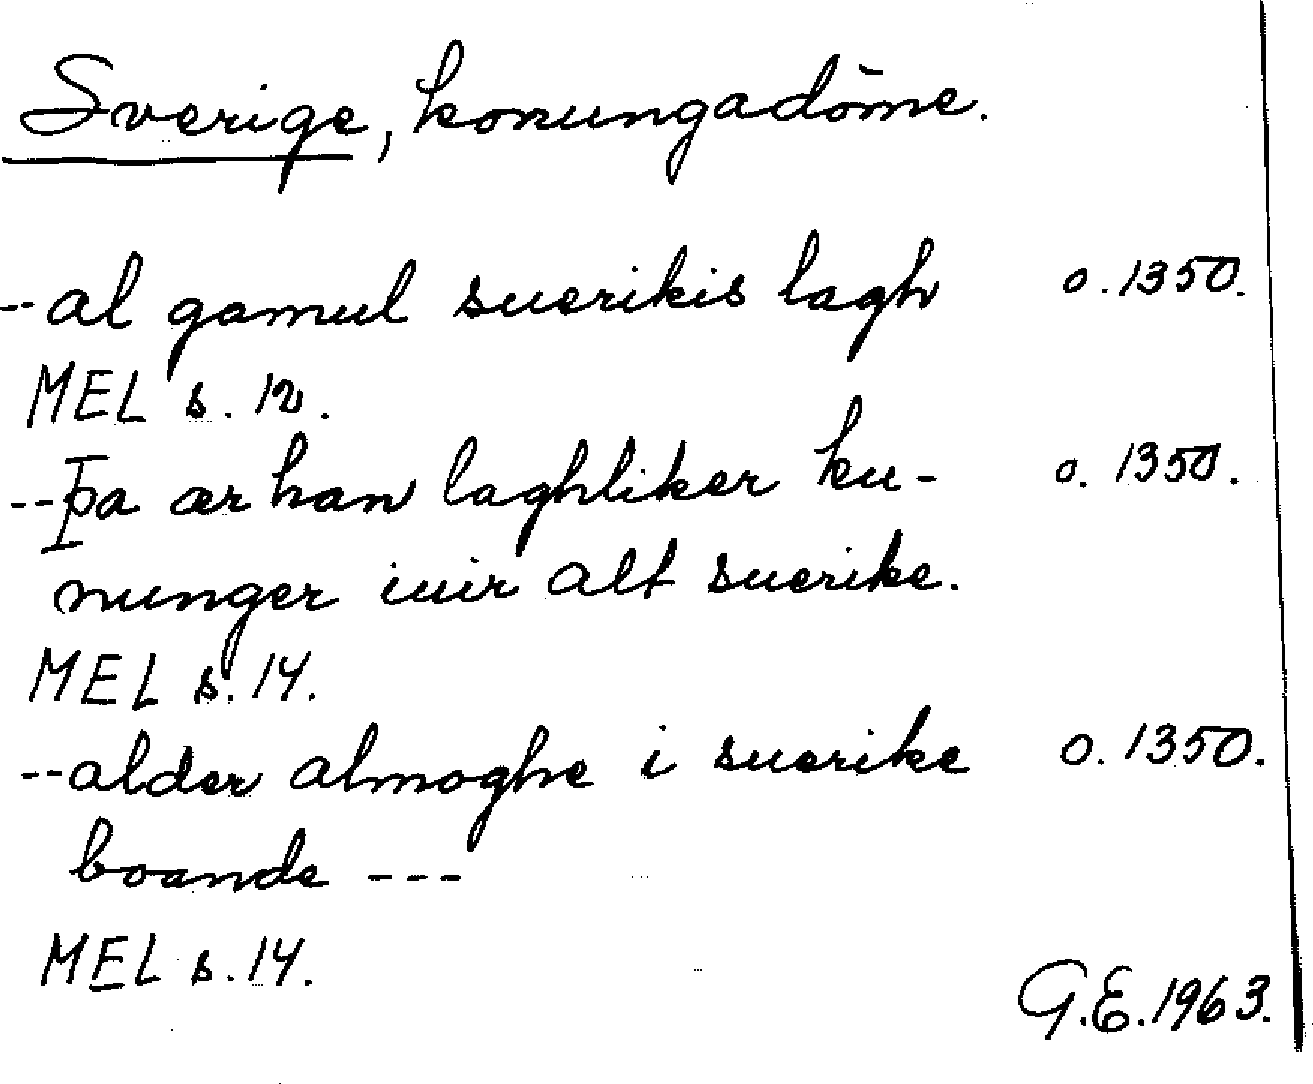 Sverige, konungadöme.
--al gamul suerikis lagh o. 1350.
MEL s. 12.
--Þa ær han laghliker ku- o. 1350.
nunger iuir alt suerike.
MEL s. 14.
--alder almoghe i suerike o. 1350.
boande ---
MEL s. 14.
G.E. 1963.